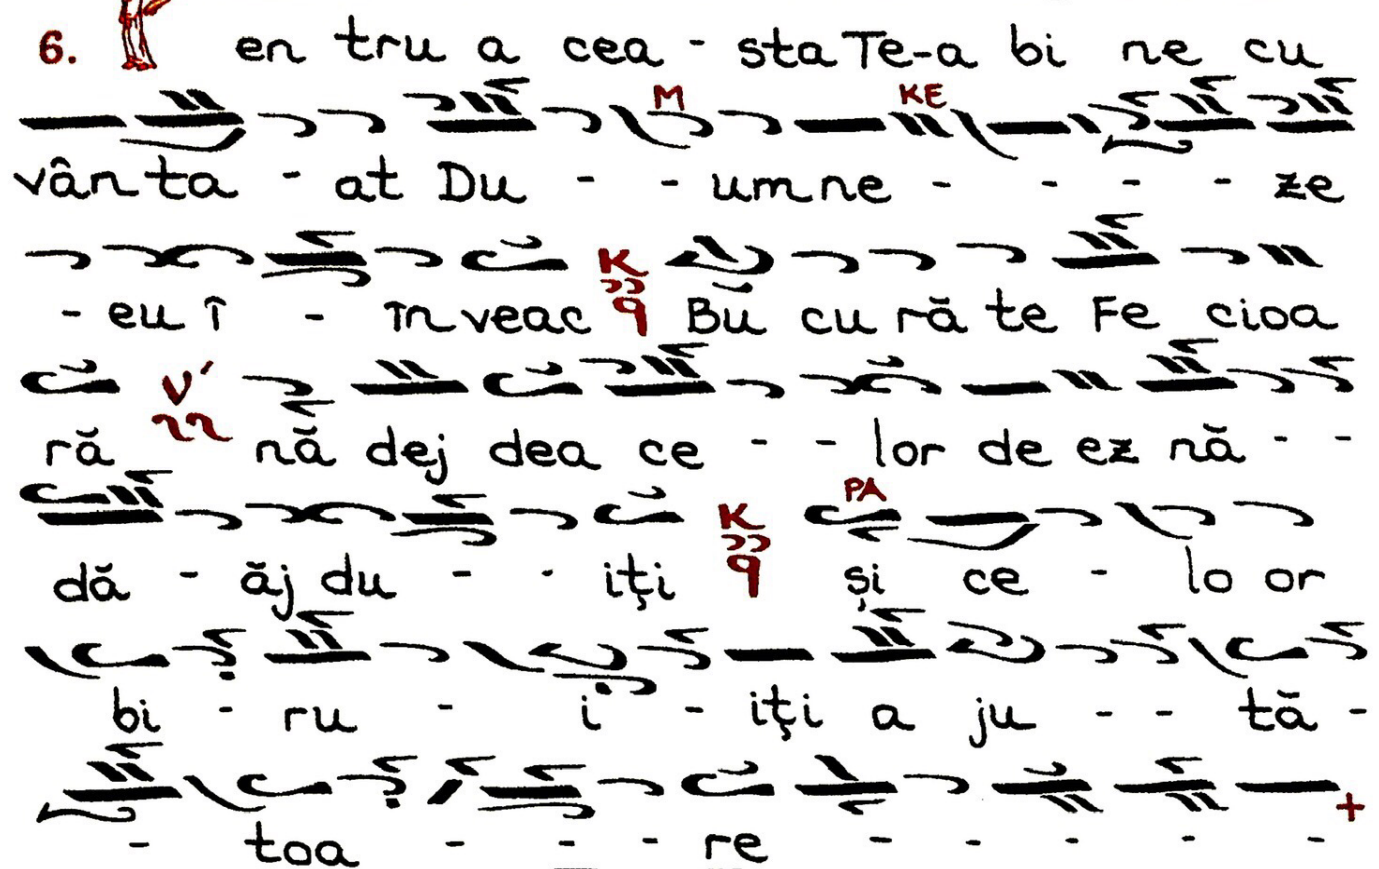 6. en tru a cea - sta Te-a bi ne cu
M KE
vân ta - at Du - - um ne - - - - ze
- eu î - în veac K q Bu cu ră te Fe cioa
ră v´ nă dej dea ce - - lor de ez nă - -
PA
dă - ăj du - - iți K q și ce - lo or
bi - ru - i - iți a ju - - tă -
- toa - - - re - - - - -